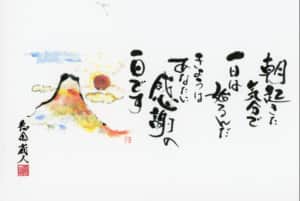 朝起きた
気分で
一日は
始るんだ
きょうは
あなたに
感謝の
一日です